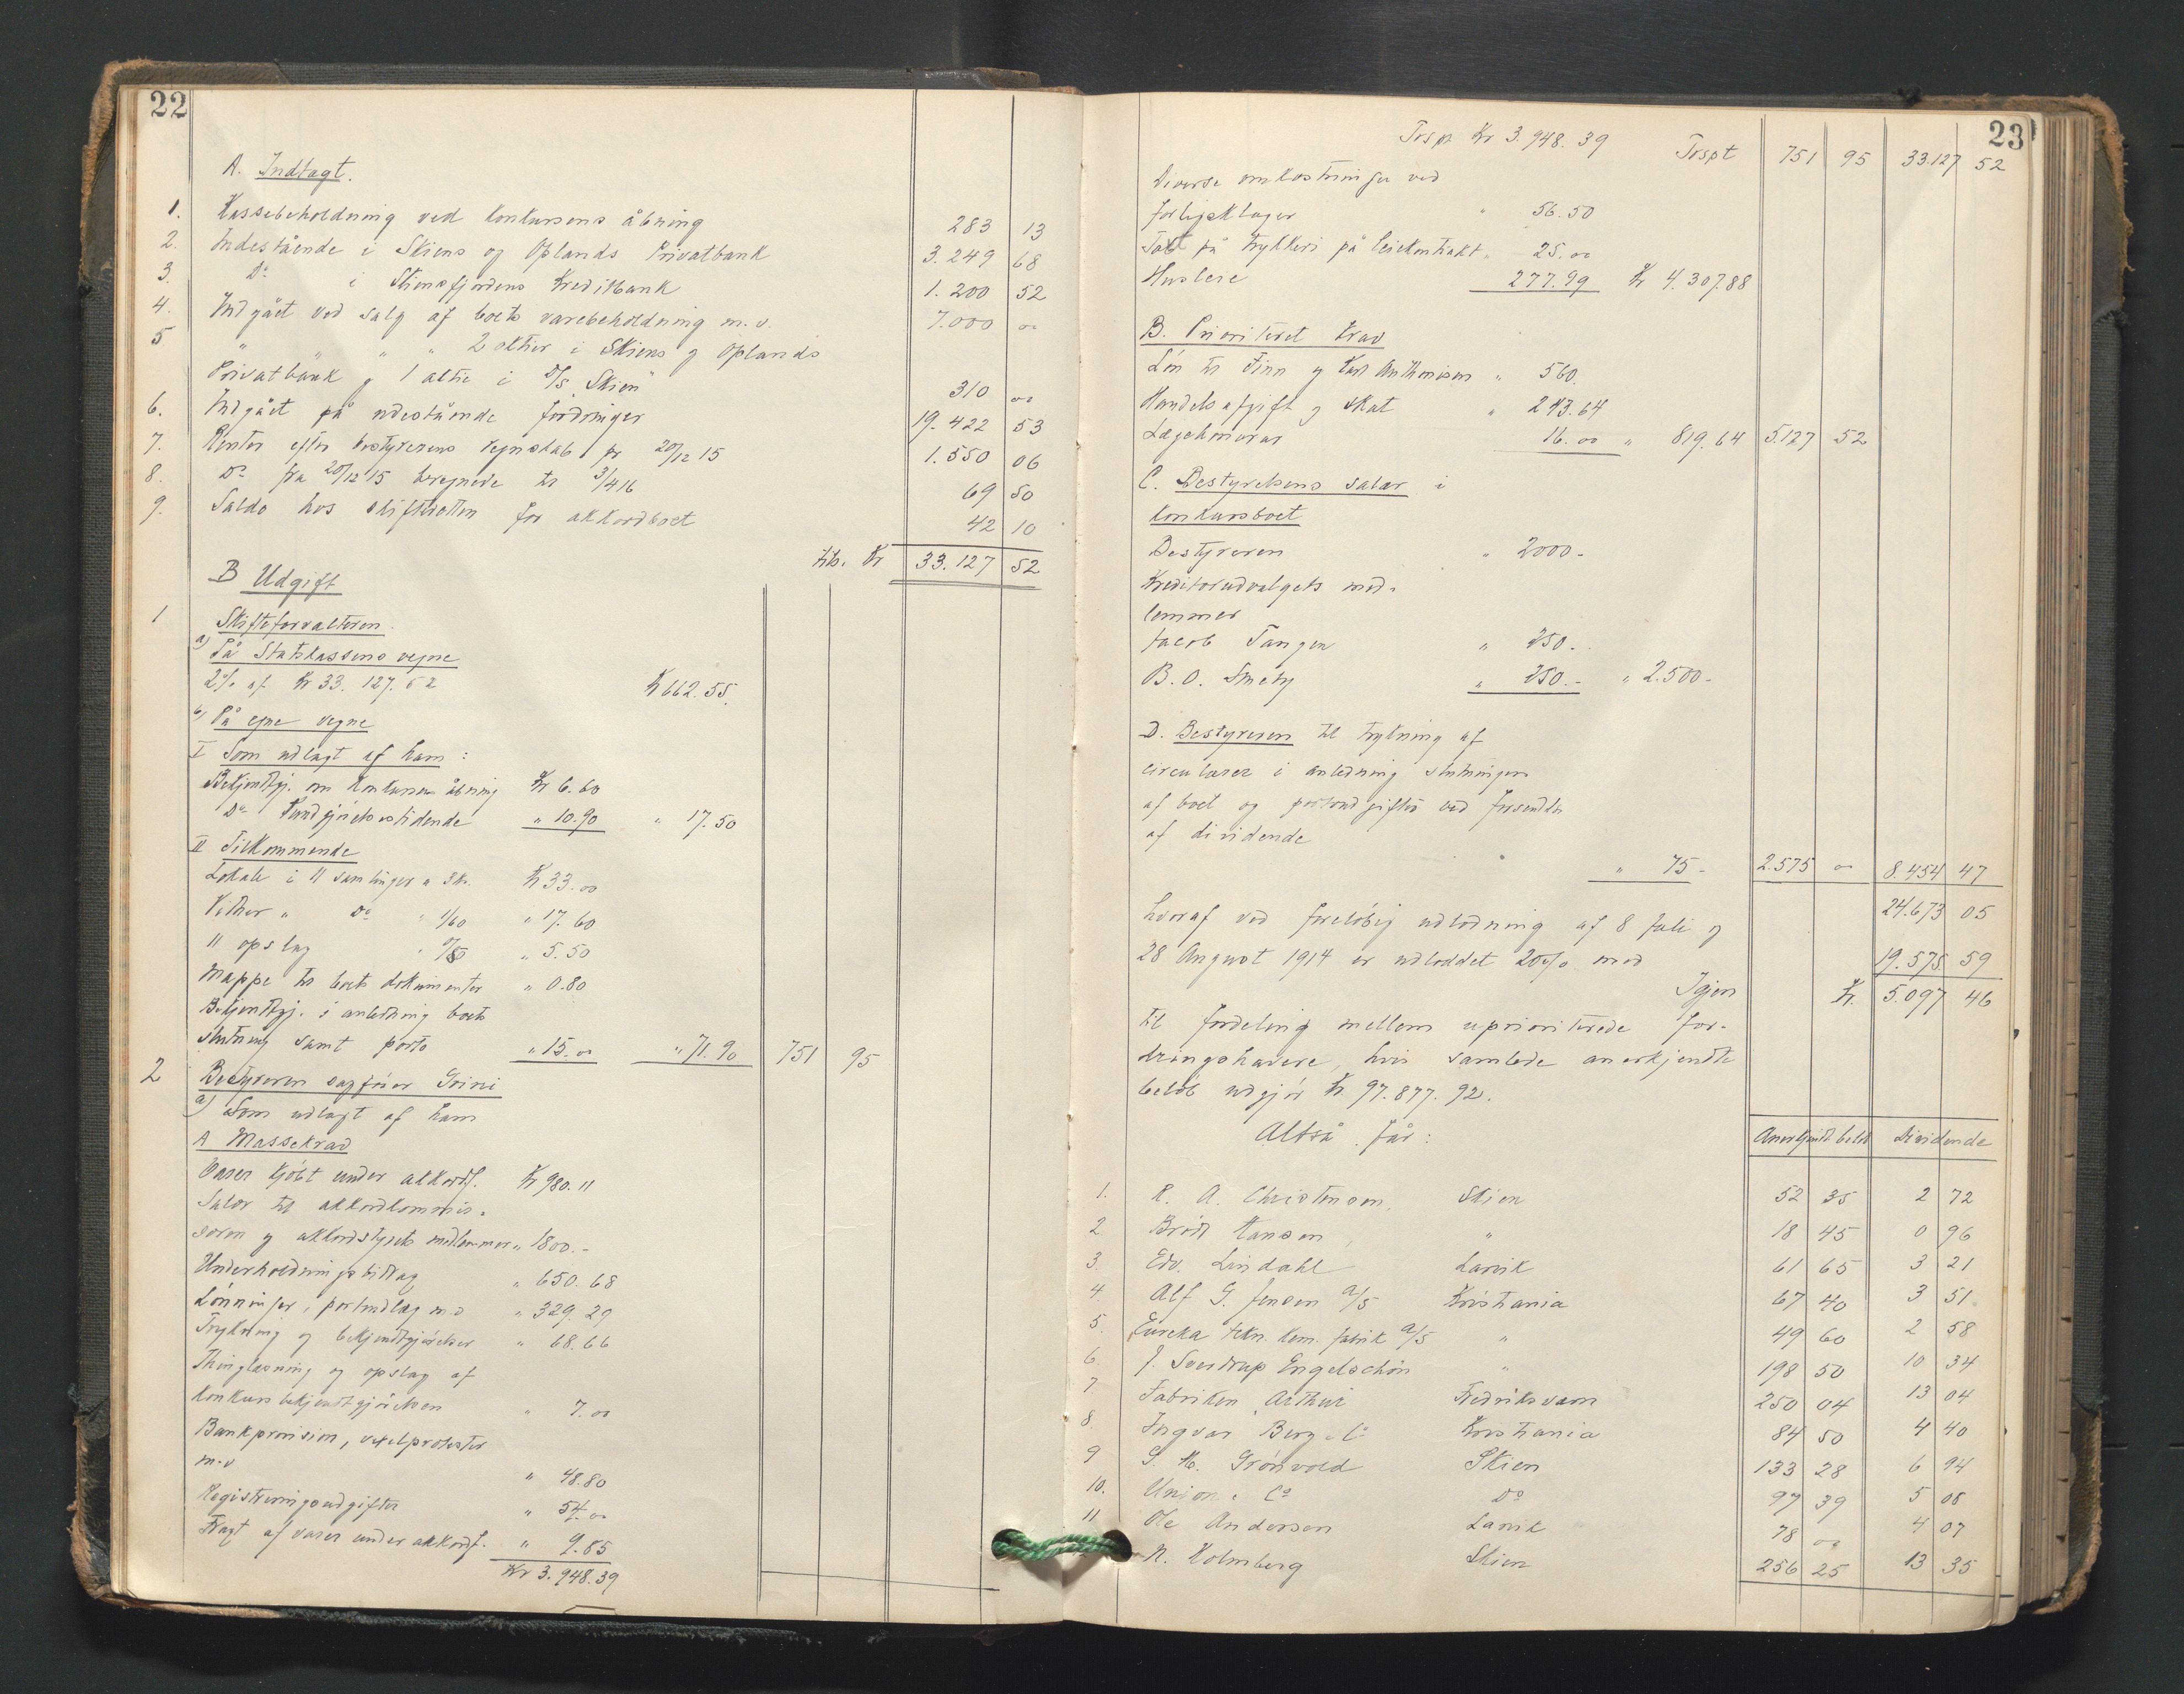 22
A. Indtægt.
1. Kassebeholdning ved konkursens åbning 283 13
2. Indestående i Skiens og Oplands Privatbank 3.249 68
3. Do i Skiensfjordens Kreditbank 1.200 52
4. Indgået ved salg af boets varebeholdning m.v. 7.000 00
5 " " " " 2 aktier i Skiens og Oplands
Privatbank og 1 aktie i D/S "Skien" 310 00
6. Indgået på udestående fordringer 19.422 53
7. Renter efter bestyrerens regnskab pr 20/12 15 1.550 06
8. Do fra 20/12 15 beregnede til 3/4 16 69 50
9. Saldo hos skifteretten for akkordboet 42 10
tils. Kr 33.127 52
B Udgift
1 Skifteforvalteren.
a) På Statskassens vegne
2% af Kr 33.127.52 Kr 662.55.
b) På egne vegne
I Som udlagt af ham:
Bekjendtgj. om konkursens åbning Kr 6.60
Do Kundgjörelsestidende " 10.90 " 17.50
II Tilkommende
Lokale i 11 samlinger a 3 Kr. Kr 33.00
Vidner " Do " 1/60 " 17.60
11 opslag " 0/50 " 5.50
Mappe til boets dokumenter " 0.80
Bekjendtgj. i anledning boets
slutning samt porto " 15.00 " 71.90 751 95
2 Bestyreren sagförer Grini
a) Som udlagt af ham
A Massekrav
Varer kjöbt under akkordf. Kr 980.11
Salær til akkordkommis-
særen og akkordstyrets medlemmer " 1800.-
Underholdningsbidrag " 650.68
Lönninger, portoudlæg m.v " 329.29
Trykning og bekjendtgjörelser " 68.66
Thinglæsning og opslag af
konkursbekjendtgjörelsen " 7.00
Bankprovision, vexelprotester
m.v " 48.80
Registreringsudgifter " 54.00
Fragt af varer under akkordf. " 9.85
Kr 3.948.39
23
Trspt Kr 3.948.39 Trspt 751 95 33.127 52
Diverse omkostninger ved
forligsklager " 56.50
Tabt på trykkeri på leiekontrakt " 25.00
Husleie 277.99 Kr 4.307.88
B. Prioriteret krav
Lön til Finn og Karl Anthonisen " 560.
Handelsafgift og skat " 243.64
Lægehonorar 16.00 " 819.64 5.127 52
C. Bestyrelsens salær i
konkursboet
Bestyreren " 2000-
Kreditorudvalgets med-
lemmer
Jacob Tangen " 250.-
B. O. Smeby " 250.- " 2.500-
D. Bestyreren til trykning af
circulærer i anledning slutningen
af boet og portoudgifter ved forsendelse
af dividende " 75- 2.575 00 8.454 47
24.673 05
hvoraf ved foreløbig udlodning af 8 Juli og
28 August 1914 er udloddet 20% med 19.575 59
Igjen Kr. 5.097 46
til fordeling mellem uprioriterede for-
dringshavere, hvis samlede anerkjendte
beløb udgjör Kr. 97.877.92.
Altså får:
Anerkjendt beløb Dividende
1. R. A. Christensen, Skien 52 35 2 72
2 Brödr Hansen, " 18 45 0 96
3. Edv. Lindahl Larvik 61 65 3 21
4. Alf G. Jensen A/S Kristiania 67 40 3 51
5. Eureka tekn. kem. fabrik A/S " 49 60 2 58
6 J. Sverdrup Engelschön " 198 50 10 34
7 Fabriken Arthur Fredriksværn 250 04 13 04
8 Ingvar Berg & Co Kristiania 84 50 4 40
9 G. M. Grönvold Skien 133 28 6 94
10. Union & Co Do 97 39 5 08
11 Ole Andersen Larvik 78 00 4 07
N. Holmberg Skien 256 25 13 35